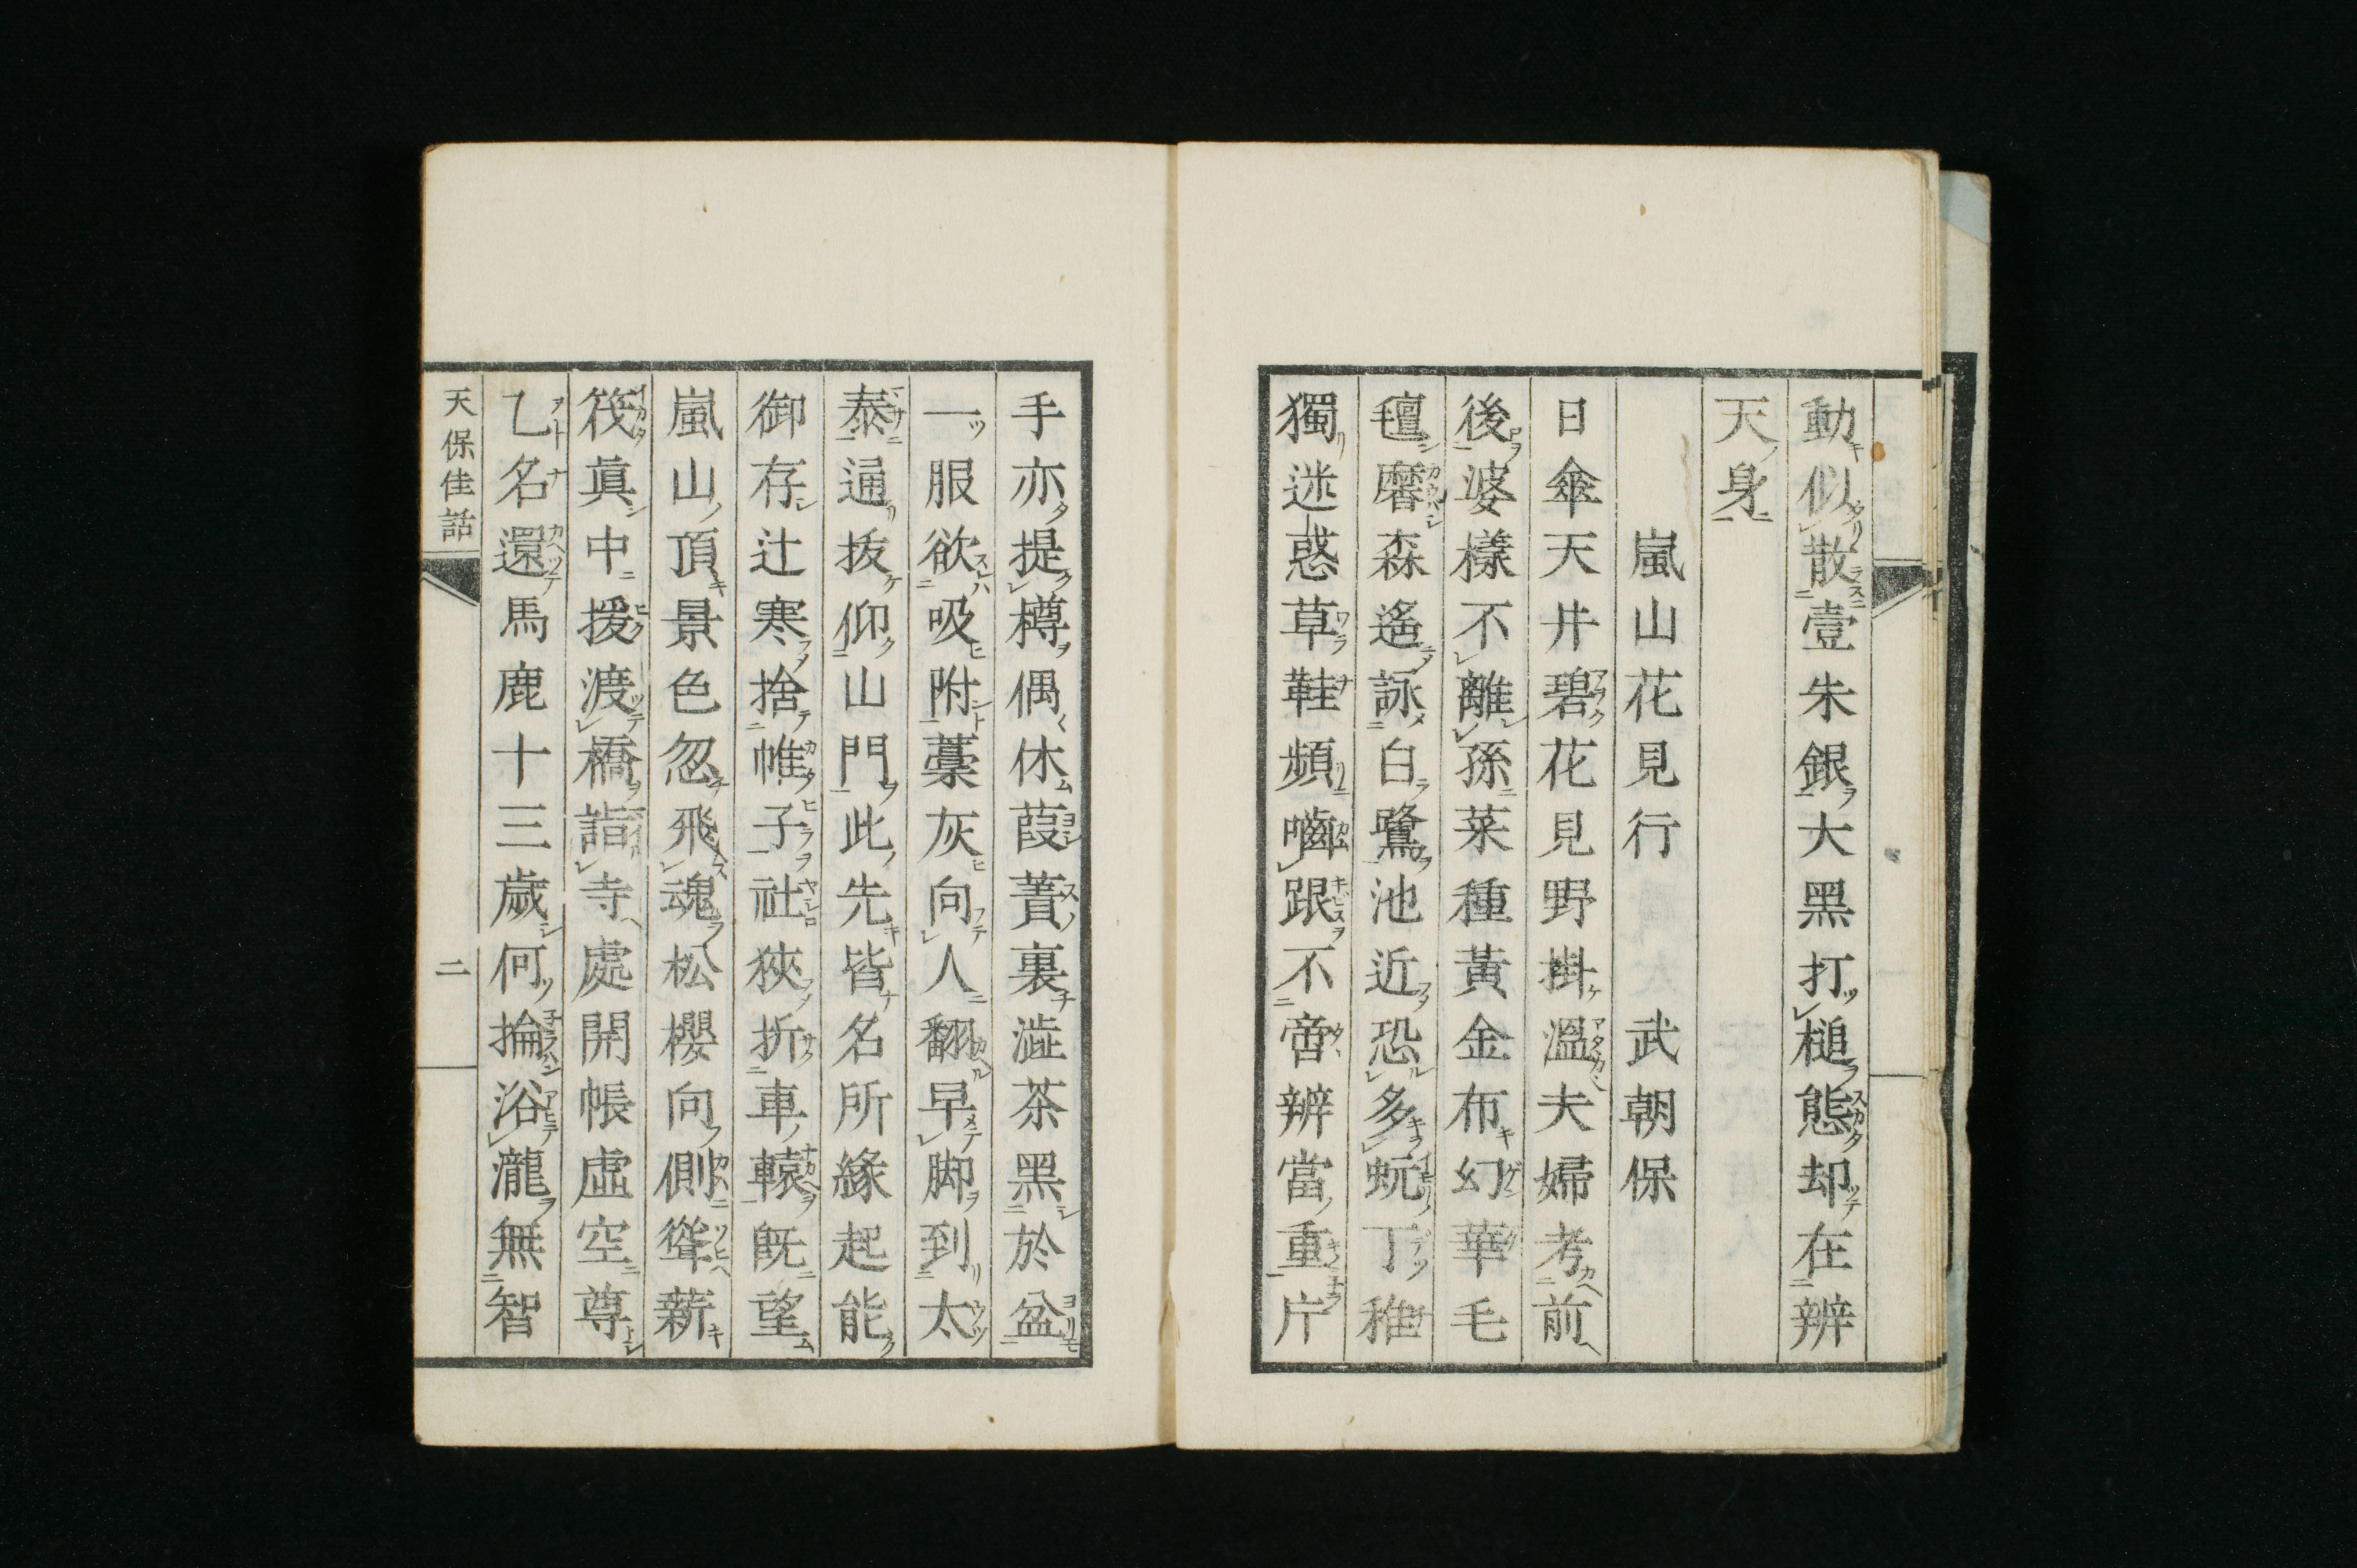 動似散壹朱銀大黑打槌態却在辨
天身
嵐山花見行　武朝保
日傘天井碧花見野掛溫夫婦考前
後婆樣不離孫菜種黃金布幻華毛
氈馨森遙詠白鷺池近恐多蚖丁稚
獨迷惑草鞋頻嚙跟不啻辨當重片
手亦提樽偶休葭簀裏澁茶黑於盆
一服欲吸附藁灰向人翻早脚到太
泰通拔仰山門此先皆名所緣起能
御存辻寒捨帷子社狹折車轅既望
嵐山頂景色忽飛魂松櫻向側聳薪
筏眞中援渡橋詣寺處開帳虛空尊
乙名還馬鹿十三歲何掄浴瀧無智
天保佳話
二